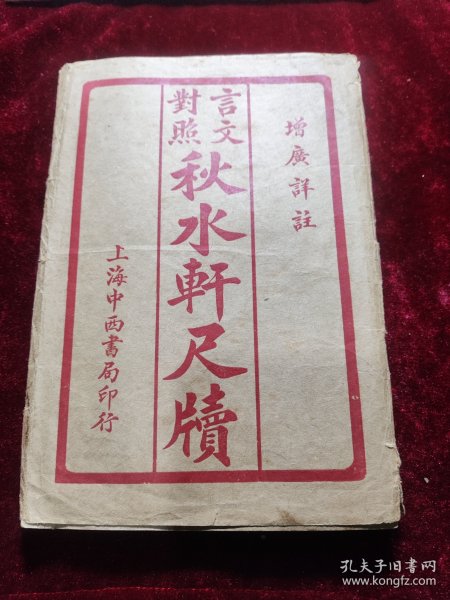 增廣詳註
言文
對照
秋水軒尺牘
上海中西書局印行
孔夫子旧书网
www.kongfz.com